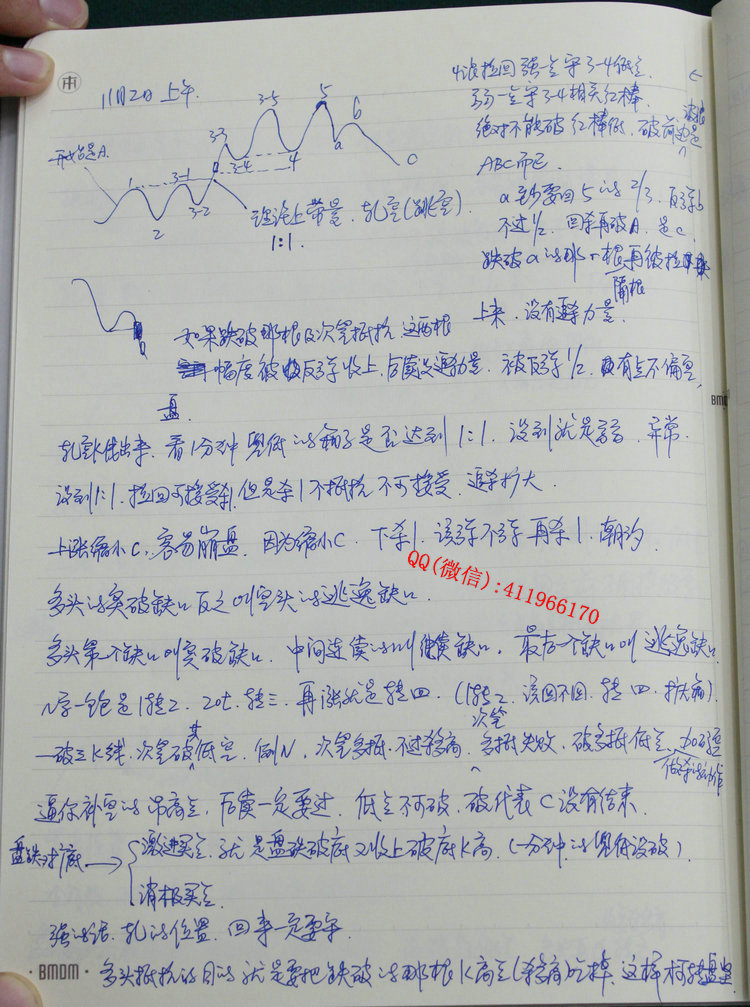 11月2日 上午.
4浪拉回强一点守3-4低点.
弱一点守3-4相关红棒.
绝对不能破红棒低,破前波
ABC而已
开始是A.
1 2 3-1 3-2 3-3 3-4 3-5 4 5 a b c
a至少要回5的2/3.反弹b
不过1/2.回杀再破A.是c.
理论上带量,轧空(跳空).
1:1.
跌破a的那一根再被拉
隔根
上来.没有追杀力量.
如果跌破那根及次笔抵抗 这两根
幅度被反弹收上.后续没追杀力量.被反弹1/2.有点不偏空,
盘.
轧空K出来.看1分钟见低的箱子是否达到1:1.没到就是弱.异常.
没到1:1.拉回可接受杀1.但是杀1不抵抗不可接受.追杀扩大.
上涨缩小C,容易崩盘.因为缩小C.下杀1.该弹不弹再杀1.
QQ(微信):411966170
多头的突破缺口反之叫空头的逃逸缺口.
多头第一个缺口叫突破缺口.中间连续的叫继续缺口,最后一个缺口叫逃逸缺口.
N字一饱是1转2.2ot.转三.再涨就是转四.(1转2.该回不回.转四.扩大痛).
一破三K线.次笔破其低空.倒N.次笔多抵.不过杀高.次笔多抵失败.破多抵低点.加码空
做杀的动作
逼你补空的吊高点,后续一定要过.低点不可破.破代表C没有结束.
盘跌扩底→
激进买点.就是盘跌破底又收上破底K高.(一分钟的见低没破).
消极买点
强的话.轧的位置.回来一定要守.
多头抵抗的目的就是要把跌破的那根K高点(杀高)吃掉.这样
BMDM